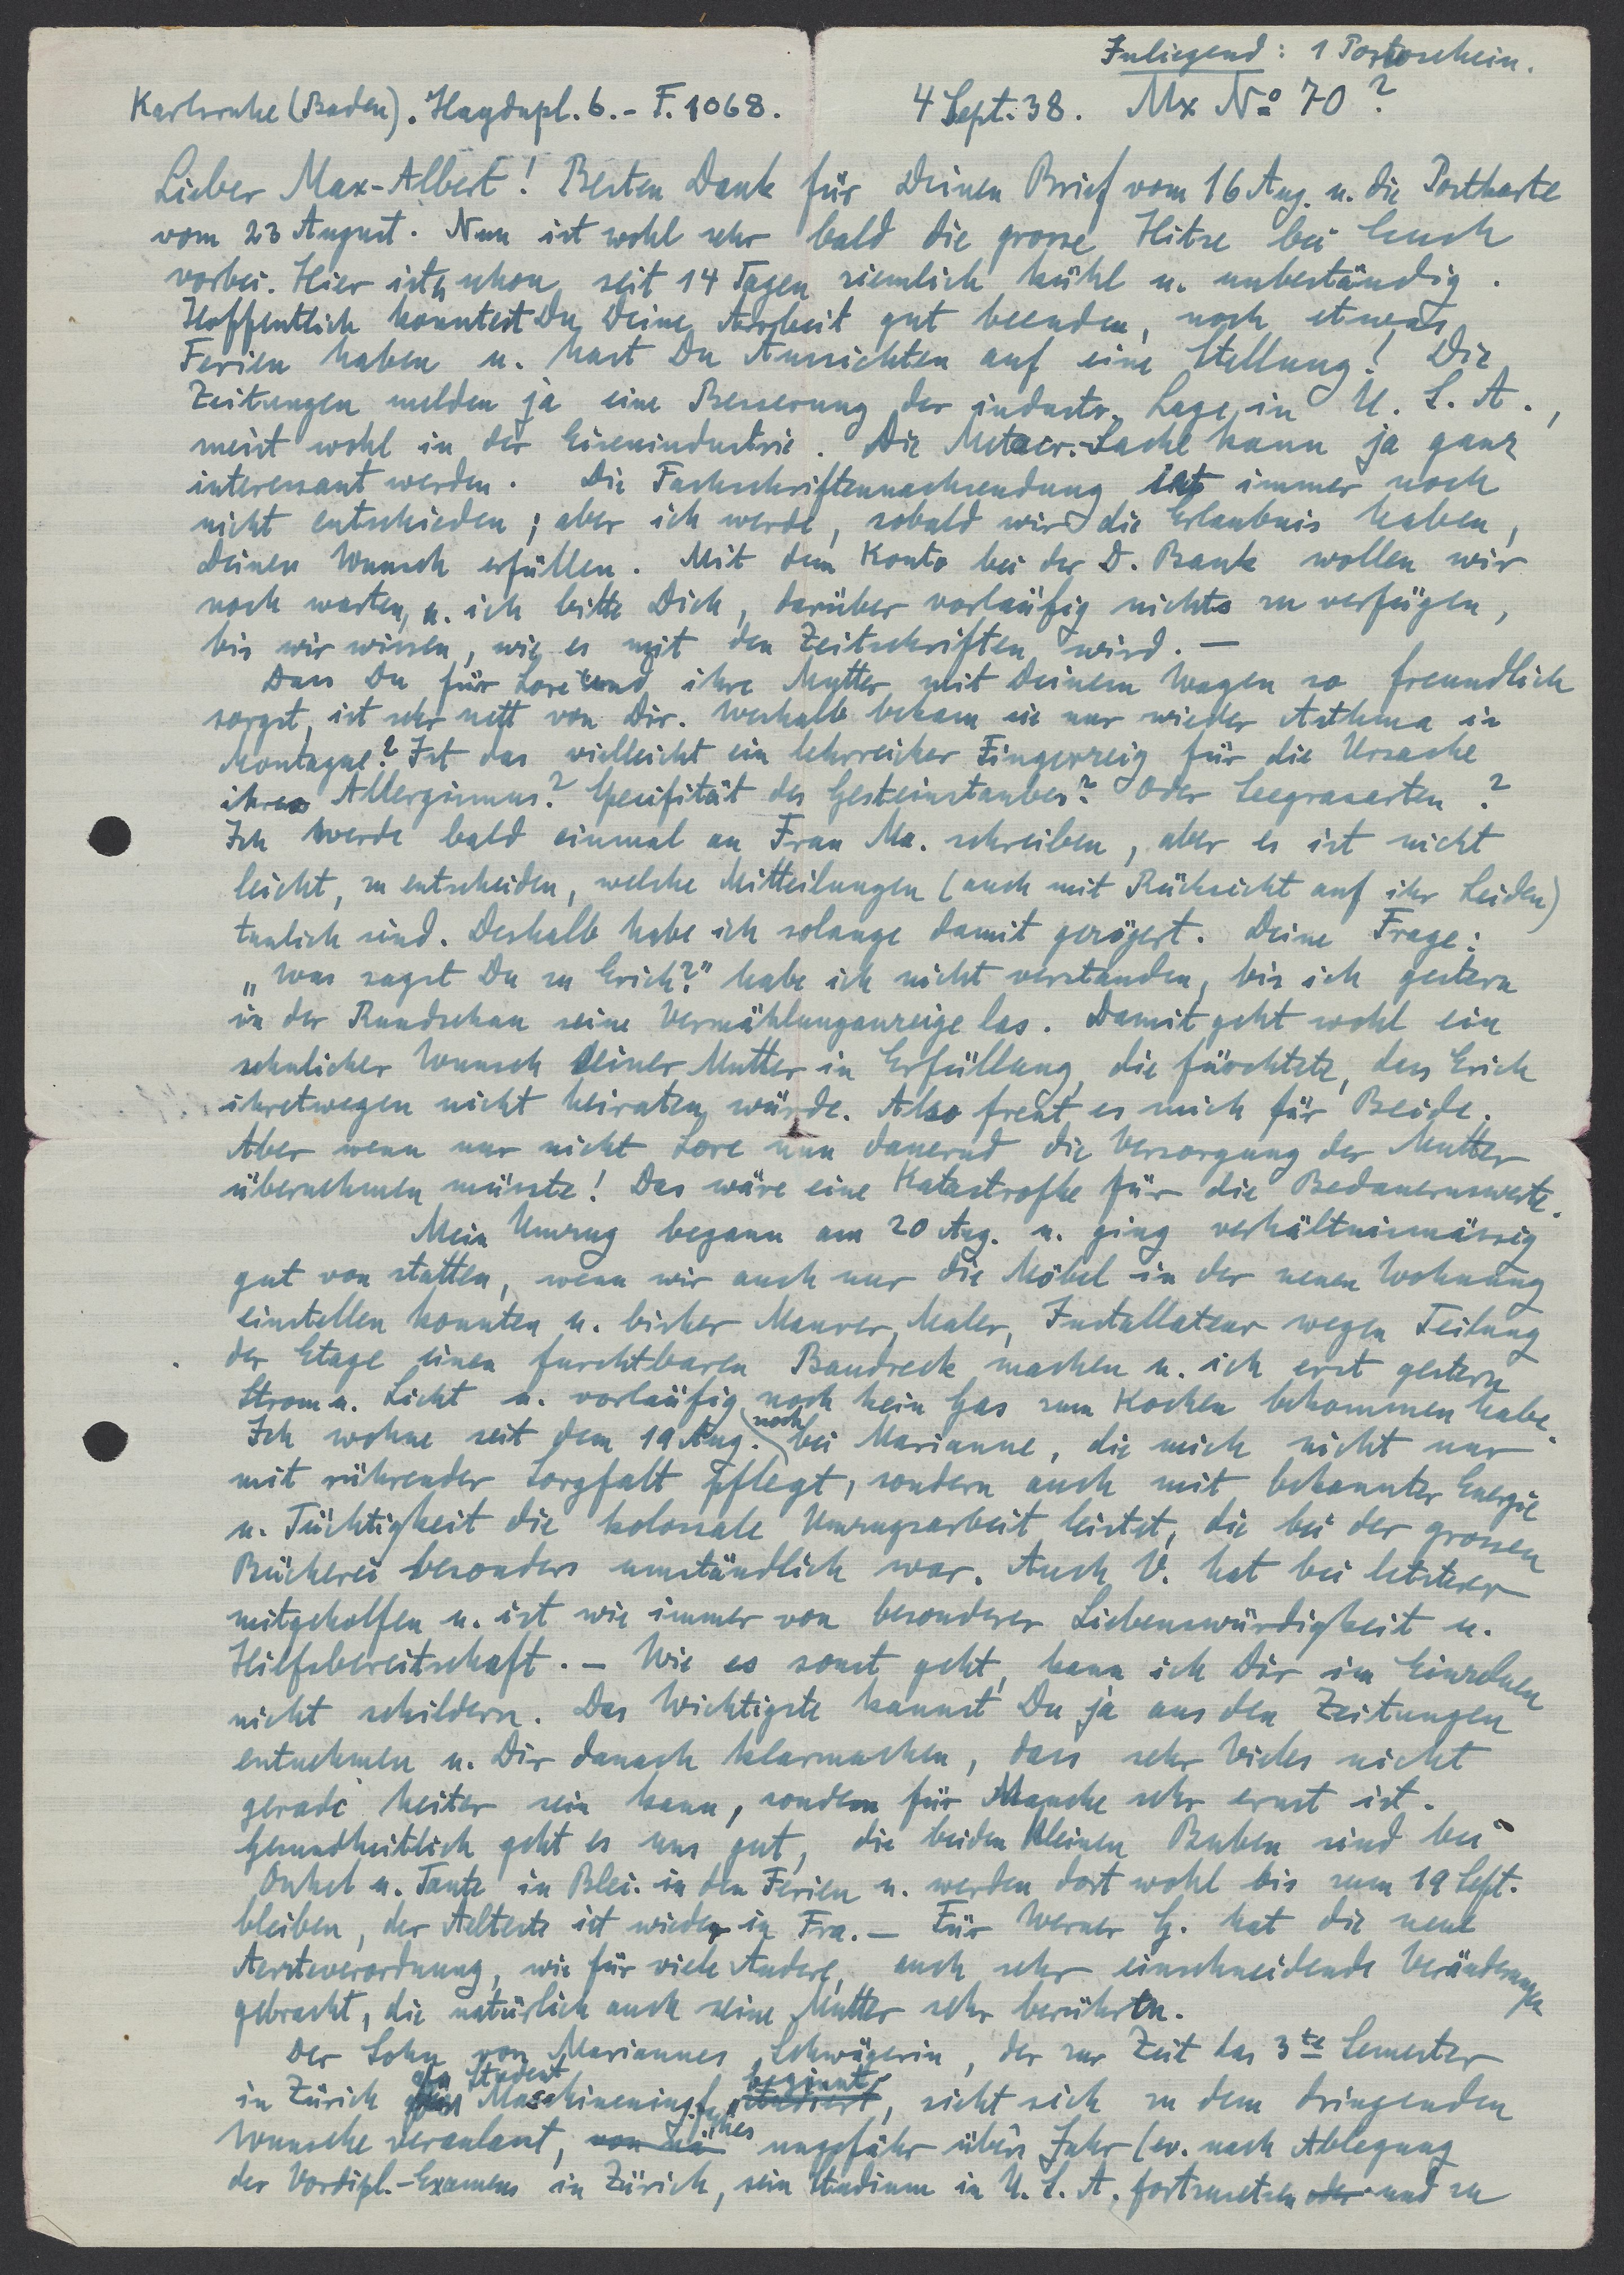 Inliegend: 1 Portoschein.
Karlsruhe (Baden). Haydnpl. 6. - F. 1068. 4 Sept. 38. Mx No 70?
Lieber Max-Albert! Besten Dank für Deinen Brief vom 16 Aug. u. die Postkarte
vom 23 August. Nun ist wohl sehr bald die grosse Hitze bei Euch
vorbei. Hier ists schon seit 14 Tagen ziemlich kühl u. unbeständig.
Hoffentlich konntest Du Deine Arbeit gut beenden, noch etwas
Ferien haben u. hast Du Aussichten auf eine Stellung! Die
Zeitungen melden ja eine Besserung der industr. Lage in U. S. A.,
meist wohl in der Eisenindustrie. Die Sache kann ja ganz
interessant werden. Die Fachschriftennachsendung ist immer noch
nicht entschieden; aber ich werde, sobald wir die Erlaubnis haben,
Deinen Wunsch erfüllen. Mit dem Konto bei der D. Bank wollen wir
noch warten, u. ich bitte Dich, darüber vorläufig nichts zu verfügen,
bis wir wissen, wie es mit den Zeitschriften wird. —
Dass Du für Lore und ihre Mutter mit Deinem Wagen so freundlich
sorgst, ist sehr nett von Dir. Weshalb bekam sie nur wieder Asthma in
Montague? Ist das vielleicht ein lehrreicher Fingerzeig für die Ursache
ihres Allergismus? Spezifität des Gesteinstaubes? Oder Seegrasarten?
Ich werde bald einmal an Frau Ma. schreiben, aber es ist nicht
leicht, zu entscheiden, welche Mitteilungen (auch mit Rücksicht auf ihr Leiden)
tunlich sind. Deshalb habe ich solange damit gezögert. Deine Frage:
„Was sagst Du zu Erich?" habe ich nicht verstanden, bis ich gestern
in der Rundschau seine Vermählungsanzeige las. Damit geht wohl ein
sehnlicher Wunsch seiner Mutter in Erfüllung, die fürchtete, dass Erich
ihretwegen nicht heiraten würde. Also freut es mich für Beide.
Aber wenn nur nicht Lore nun dauernd die Versorgung der Mutter
übernehmen müsste! Das wäre eine Katastrofhe für die Bedauernswerte.
Mein Umzug begann am 20 Aug. u. ging verhältnismässig
gut von statten, wenn wir auch nur die Möbel in der neuen Wohnung
einstellen konnten u. bisher Maurer, Maler, Installateur wegen Teilung
der Etage einen furchtbaren Baudreck machen u. ich erst gestern
Strom u. Licht u. vorläufig noch kein Gas zum Kochen bekommen habe.
Ich wohne seit dem 19 Aug. noch bei Marianne, die mich nicht nur
mit rührender Sorgfalt pflegt, sondern auch mit bekannter Energie
u. Tüchtigkeit die kolossale Umzugsarbeit leistet, die bei der grossen
Bücherei besonders umständlich war. Auch V. hat bei letzterer
mitgeholfen u. ist wie immer von besonderer Liebenswürdigkeit u.
Hilfsbereitschaft. — Wie es sonst geht, kann ich Dir im Einzelnen
nicht schildern. Das Wichtigste kannst Du ja aus den Zeitungen
entnehmen u. Dir danach klarmachen, dass sehr Vieles nicht
gerade heiter sein kann, sondern für Manche sehr ernst ist.
Gesundheitlich geht es uns gut, die beiden kleinen Buben sind bei
Onkel u. Tante in Blei. in den Ferien u. werden dort wohl bis zum 19 Sept.
bleiben, der Aelteste ist wieder in Fra. — Für Werner G. hat die neue
Aerzteverordnung, wie für viele Andere, auch sehr einschneidende Veränderungen
gebracht, die natürlich auch seine Mutter sehr berührten.
Der Sohn von Mariannes Schwägerin, der zur Zeit das 3te Semester
in Zürich als Student des Maschineningfches beginnt, sieht sich zu dem dringenden
Wunsche veranlasst, ungefähr übers Jahr (ev. nach Ablegung
des Vordipl.-Examens in Zürich, sein Studium in U. S. A. fortzusetzen oder und zu